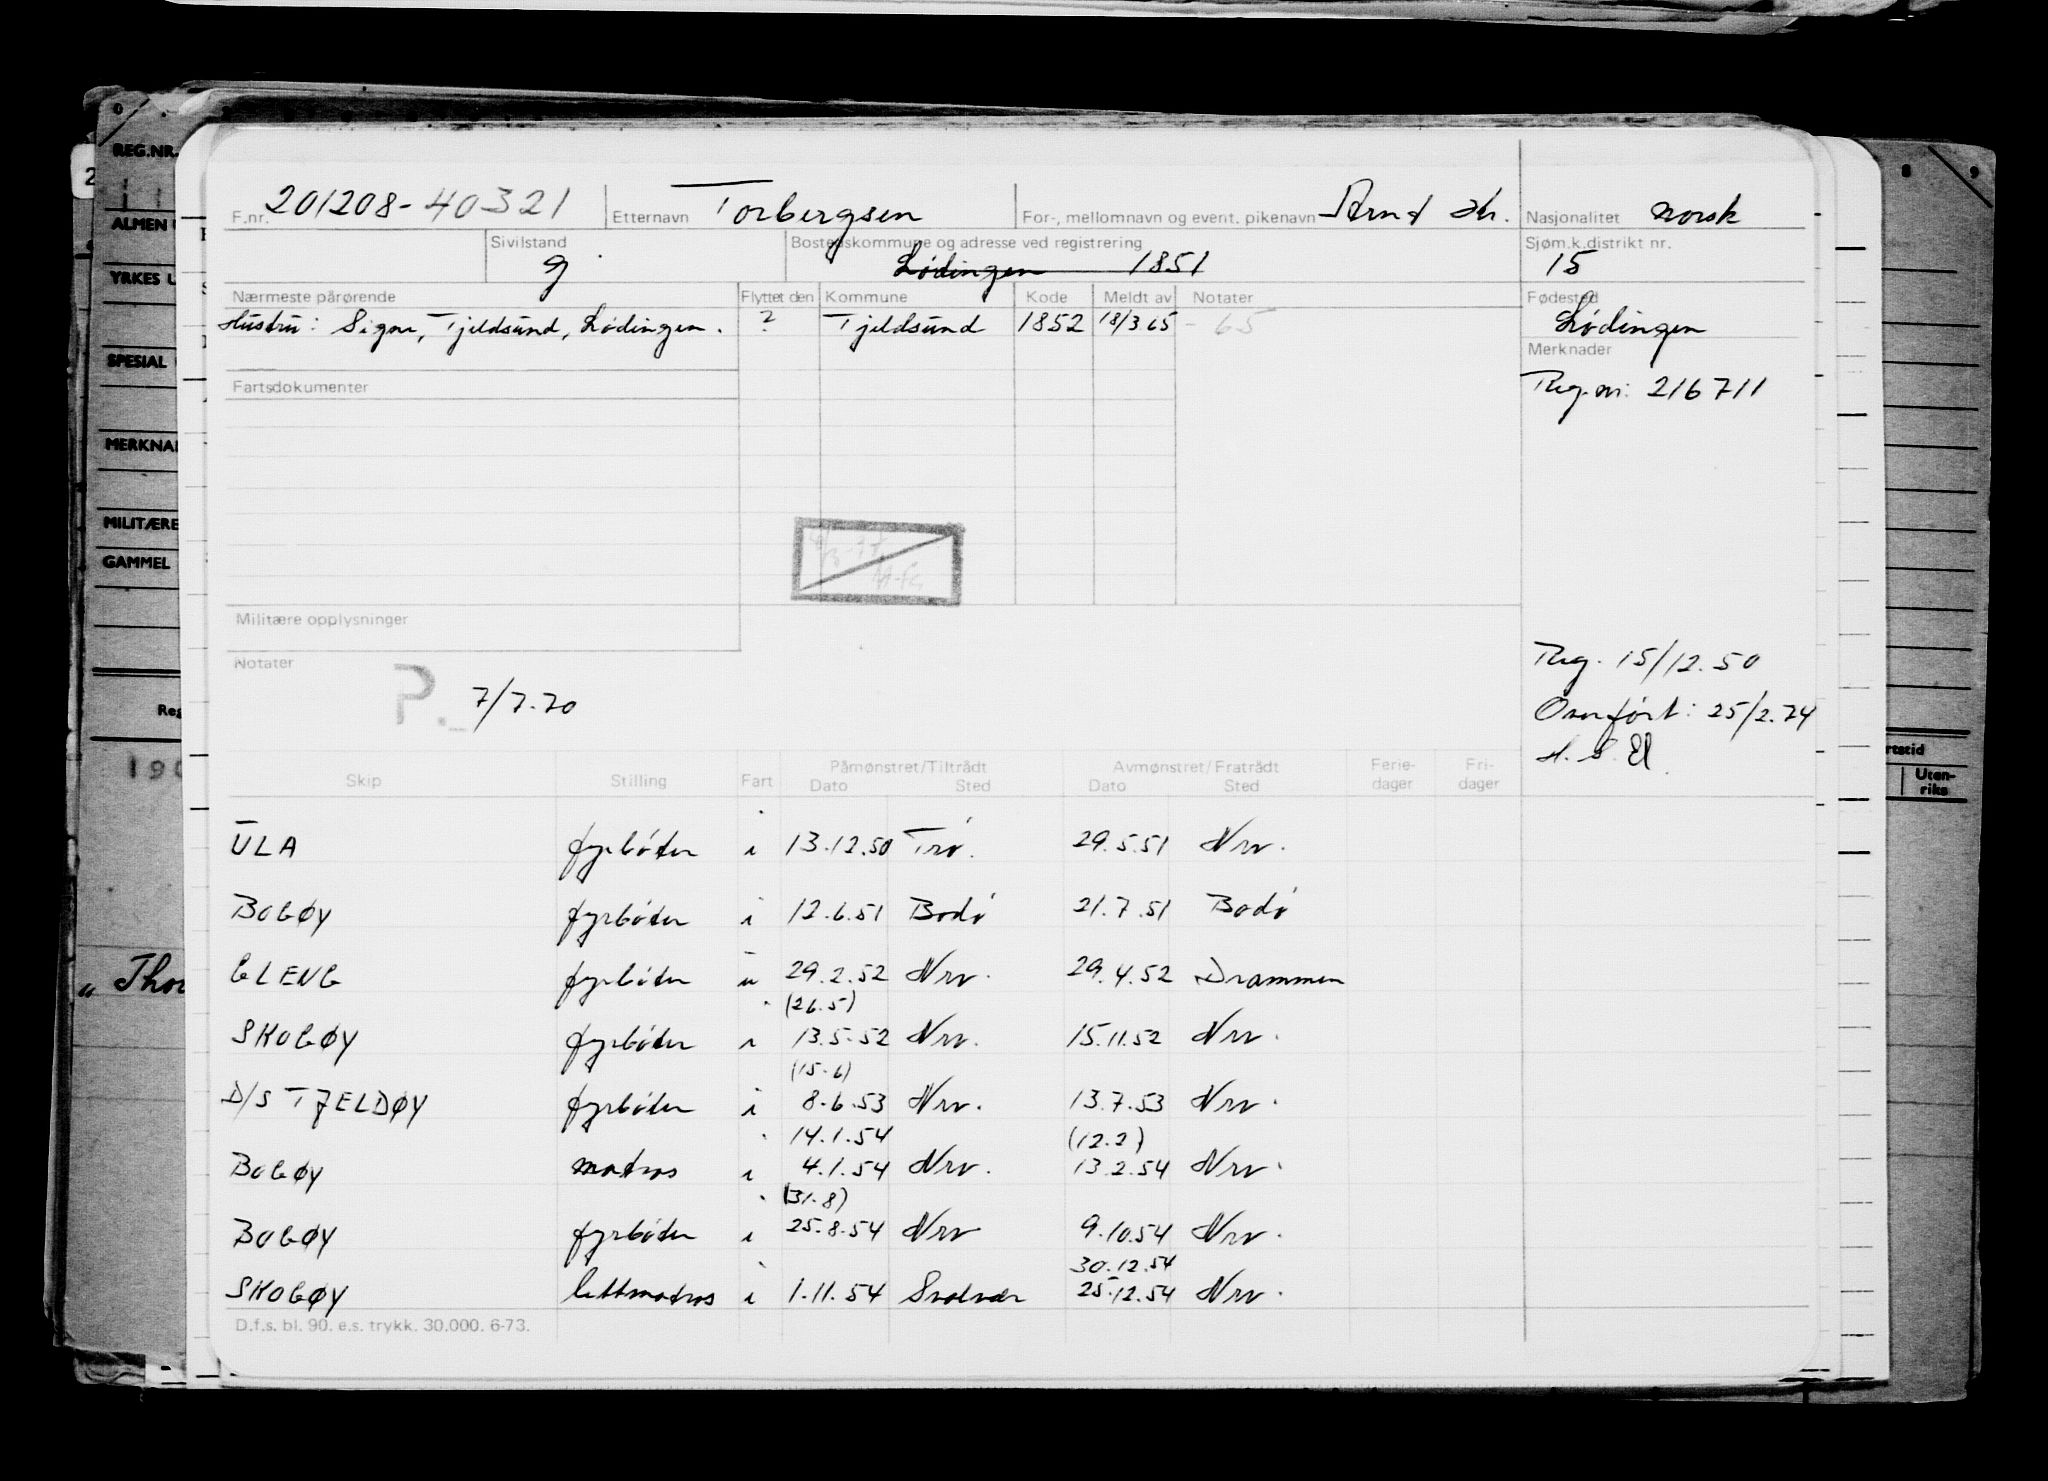 F.nr. 201208-40321 Etternavn Torbergsen For-, mellomnavn og event. pikenavn Arnt Kr. Nasjonalitet norsk
Sivilstand g Bostedskommune og adresse ved registrering Lødingen 1851 Sjøm.k.distrikt nr. 15
Nærmeste pårørende Flyttet den Kommune Kode Meldt av Notater Fødested
Hustru: Signe, Tjeldsund, Lødingen. ? Tjeldsund 1852 18/3 65 - 65 Lødingen
Merknader
Fartsdokumenter
Reg.nr: 216711
Militære opplysninger
Notater
P. 7/7.70
Reg. 15/12.50
Overført: 25/2.74
Skip Stilling Fart Påmønstret/Tiltrådt Dato Sted Avmønstret/Fratrådt Dato Sted Ferie-dager Fri-dager
ULA fyrbøter i 13.12.50 Trø. 29.5.51 Nrv.
BOGØY fyrbøter i 12.6.51 Bodø 21.7.51 Bodø
GLENG fyrbøter u 29.2.52 Nrv. 29.4.52 Drammen
(26.5)
SKOGØY fyrbøter i 13.5.52 Nrv. 15.11.52 Nrv.
(15.6)
D/S TJELDØY fyrbøter i 8.6.53 Nrv. 13.7.53 Nrv.
14.1.54 (12.2)
BOGØY matros i 4.1.54 Nrv. 13.2.54 Nrv.
(31.8)
BOGØY fyrbøter i 25.8.54 Nrv 9.10.54 Nrv.
30.12.54
SKOGØY lettmatros i 1.11.54 Svolvær 25.12.54 Nrv.
D.f.s. bl. 90. e.s. trykk. 30.000. 6-73.
REG.NR.
ALMEN
YRKES
SPESIAL
MERKNA
MILITÆRE
GAMMEL
Reg
190
„ Thor
Uten-
riks